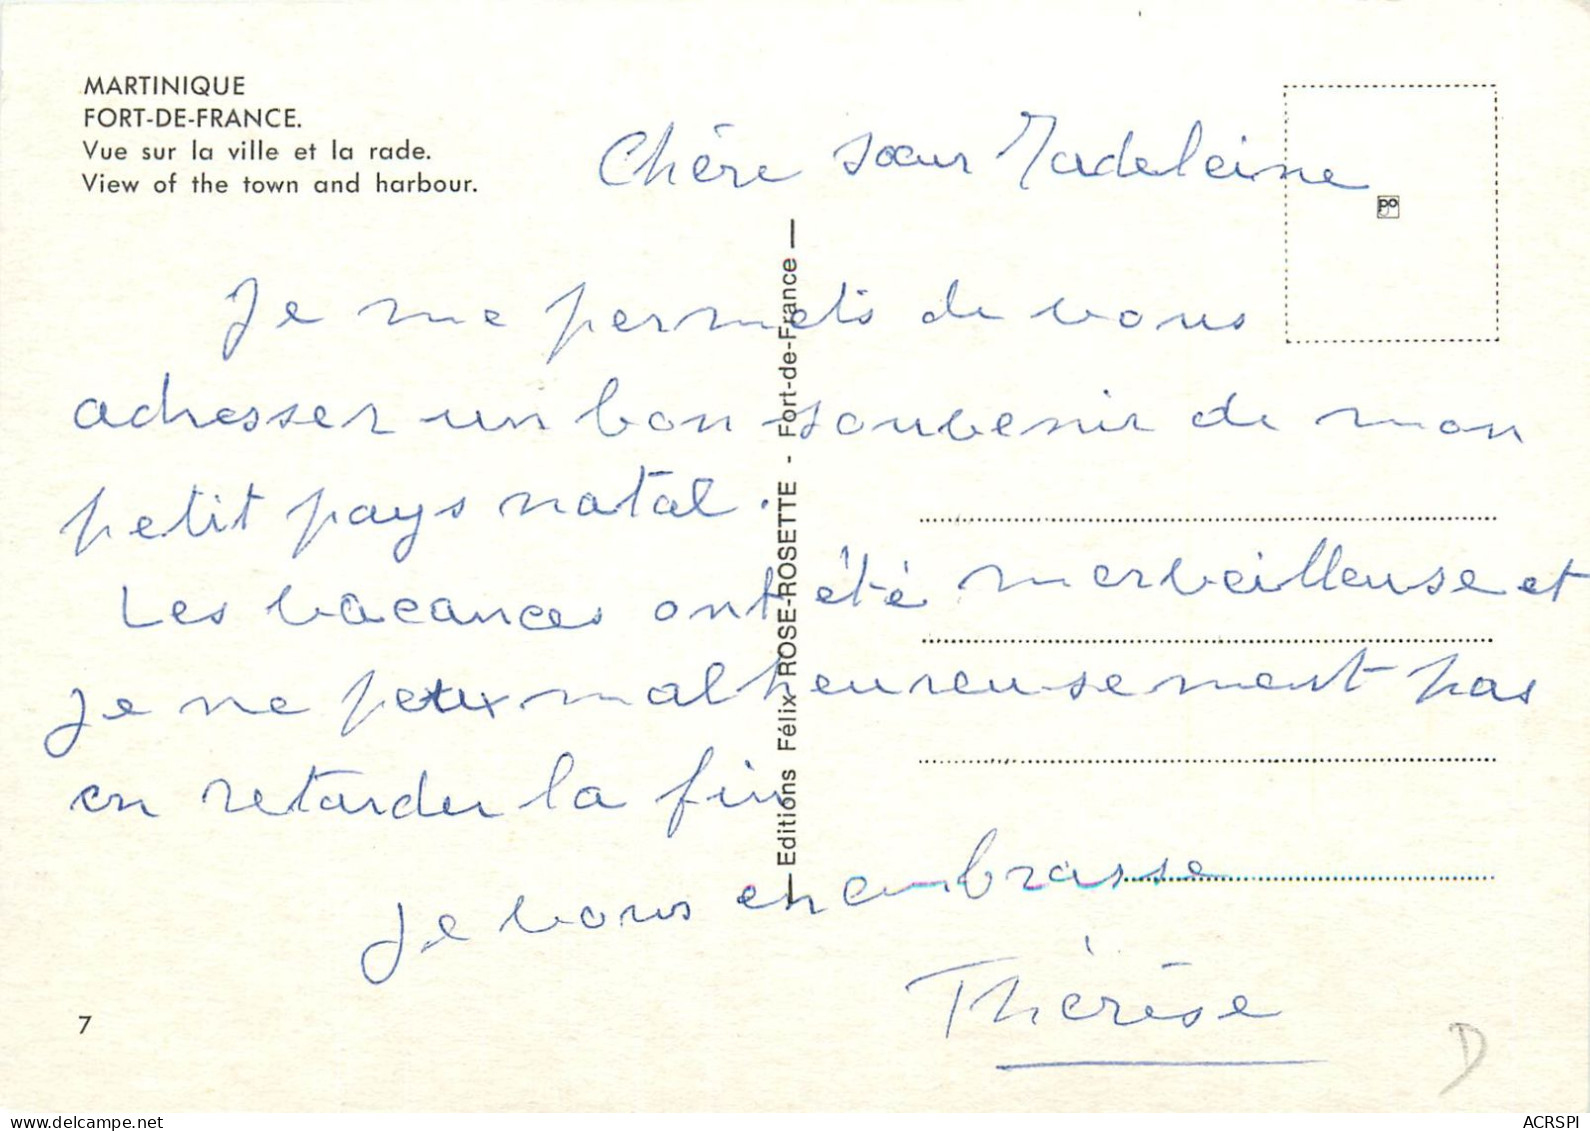 MARTINIQUE
FORT-DE-FRANCE.
Vue sur la ville et la rade.
View of the town and harbour.
Chère sœur Madeleine
po
Je me permets de vous
adresser un bon souvenir de mon
petit pays natal.
Les vacances ont été merveilleuse et
je ne peux malheureusement pas
en retarder la fin
Je vous embrasse
Thérèse
Editions Félix ROSE-ROSETTE - Fort-de-France
7
D
delcampe.net
ACRSPI